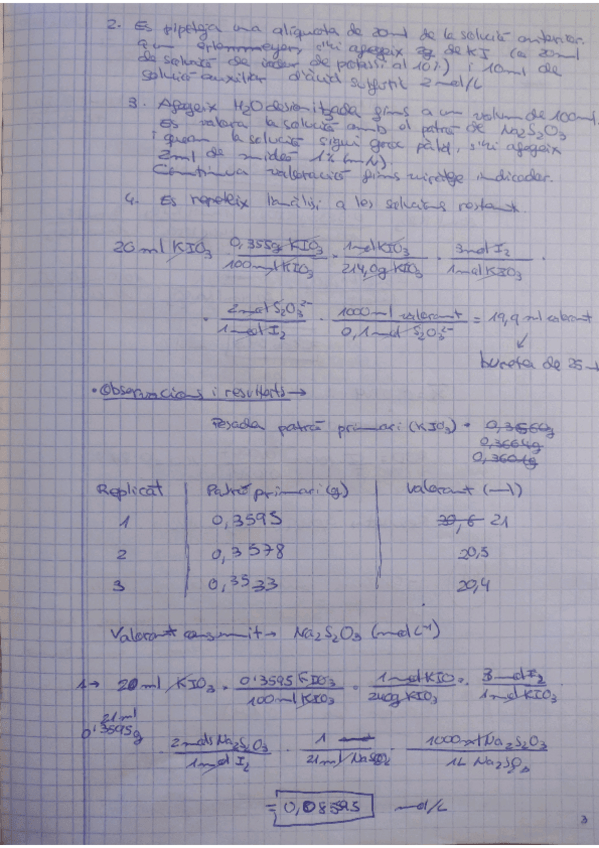 2. Es pipeteja una alíquota de 20ml de la solució anterior.
a un erlenmeyer, s'hi afegeix 2g de KI (o 20ml
de solució de iodur de potassi al 10%) i 10ml de
solució auxiliar d'àcid sulfúric 2mol/L
3. Afegeix H2O desionitzada fins a un volum de 100ml.
Es valora la solució amb el patró de Na2S2O3
i quan la solució sigui groc pàlid, s'hi afegeix
2ml de midó 1% (m/V).
Continua valoració fins viratge indicador.
4. Es repeteix l'anàlisi a les solucions restant
20 ml KIO3 · 0,355g KIO3 / 100ml KIO3 · 1mol KIO3 / 214,0g KIO3 · 3mol I2 / 1mol KIO3 ·
· 2mol S2O3²⁻ / 1mol I2 · 1000ml valorant / 0,1mol S2O3²⁻ = 19,9 ml valorant
↓
bureta de 25 m
· Observacions i resultats →
Pesada patró primari (KIO3) = 0,3660g
0,3664g
0,3604g
Replicat | Patró primari (g) | Valorant (ml)
1 | 0,3595 | 21
2 | 0,3578 | 20,5
3 | 0,3533 | 20,4
Valorant consumit → Na2S2O3 (mol L⁻¹)
1 → 20 ml KIO3 · 0'3595 KIO3 / 100ml KIO3 · 1mol KIO3 / 240g KIO3 · 3 mol I2 / 1mol KIO3
21ml
0'3595g
· 2mols Na2S2O3 / 1mol I2 · 1 / 21ml · 1000ml Na2S2O3 / 1L Na2S2O3
= 0,08595 mol/L
3